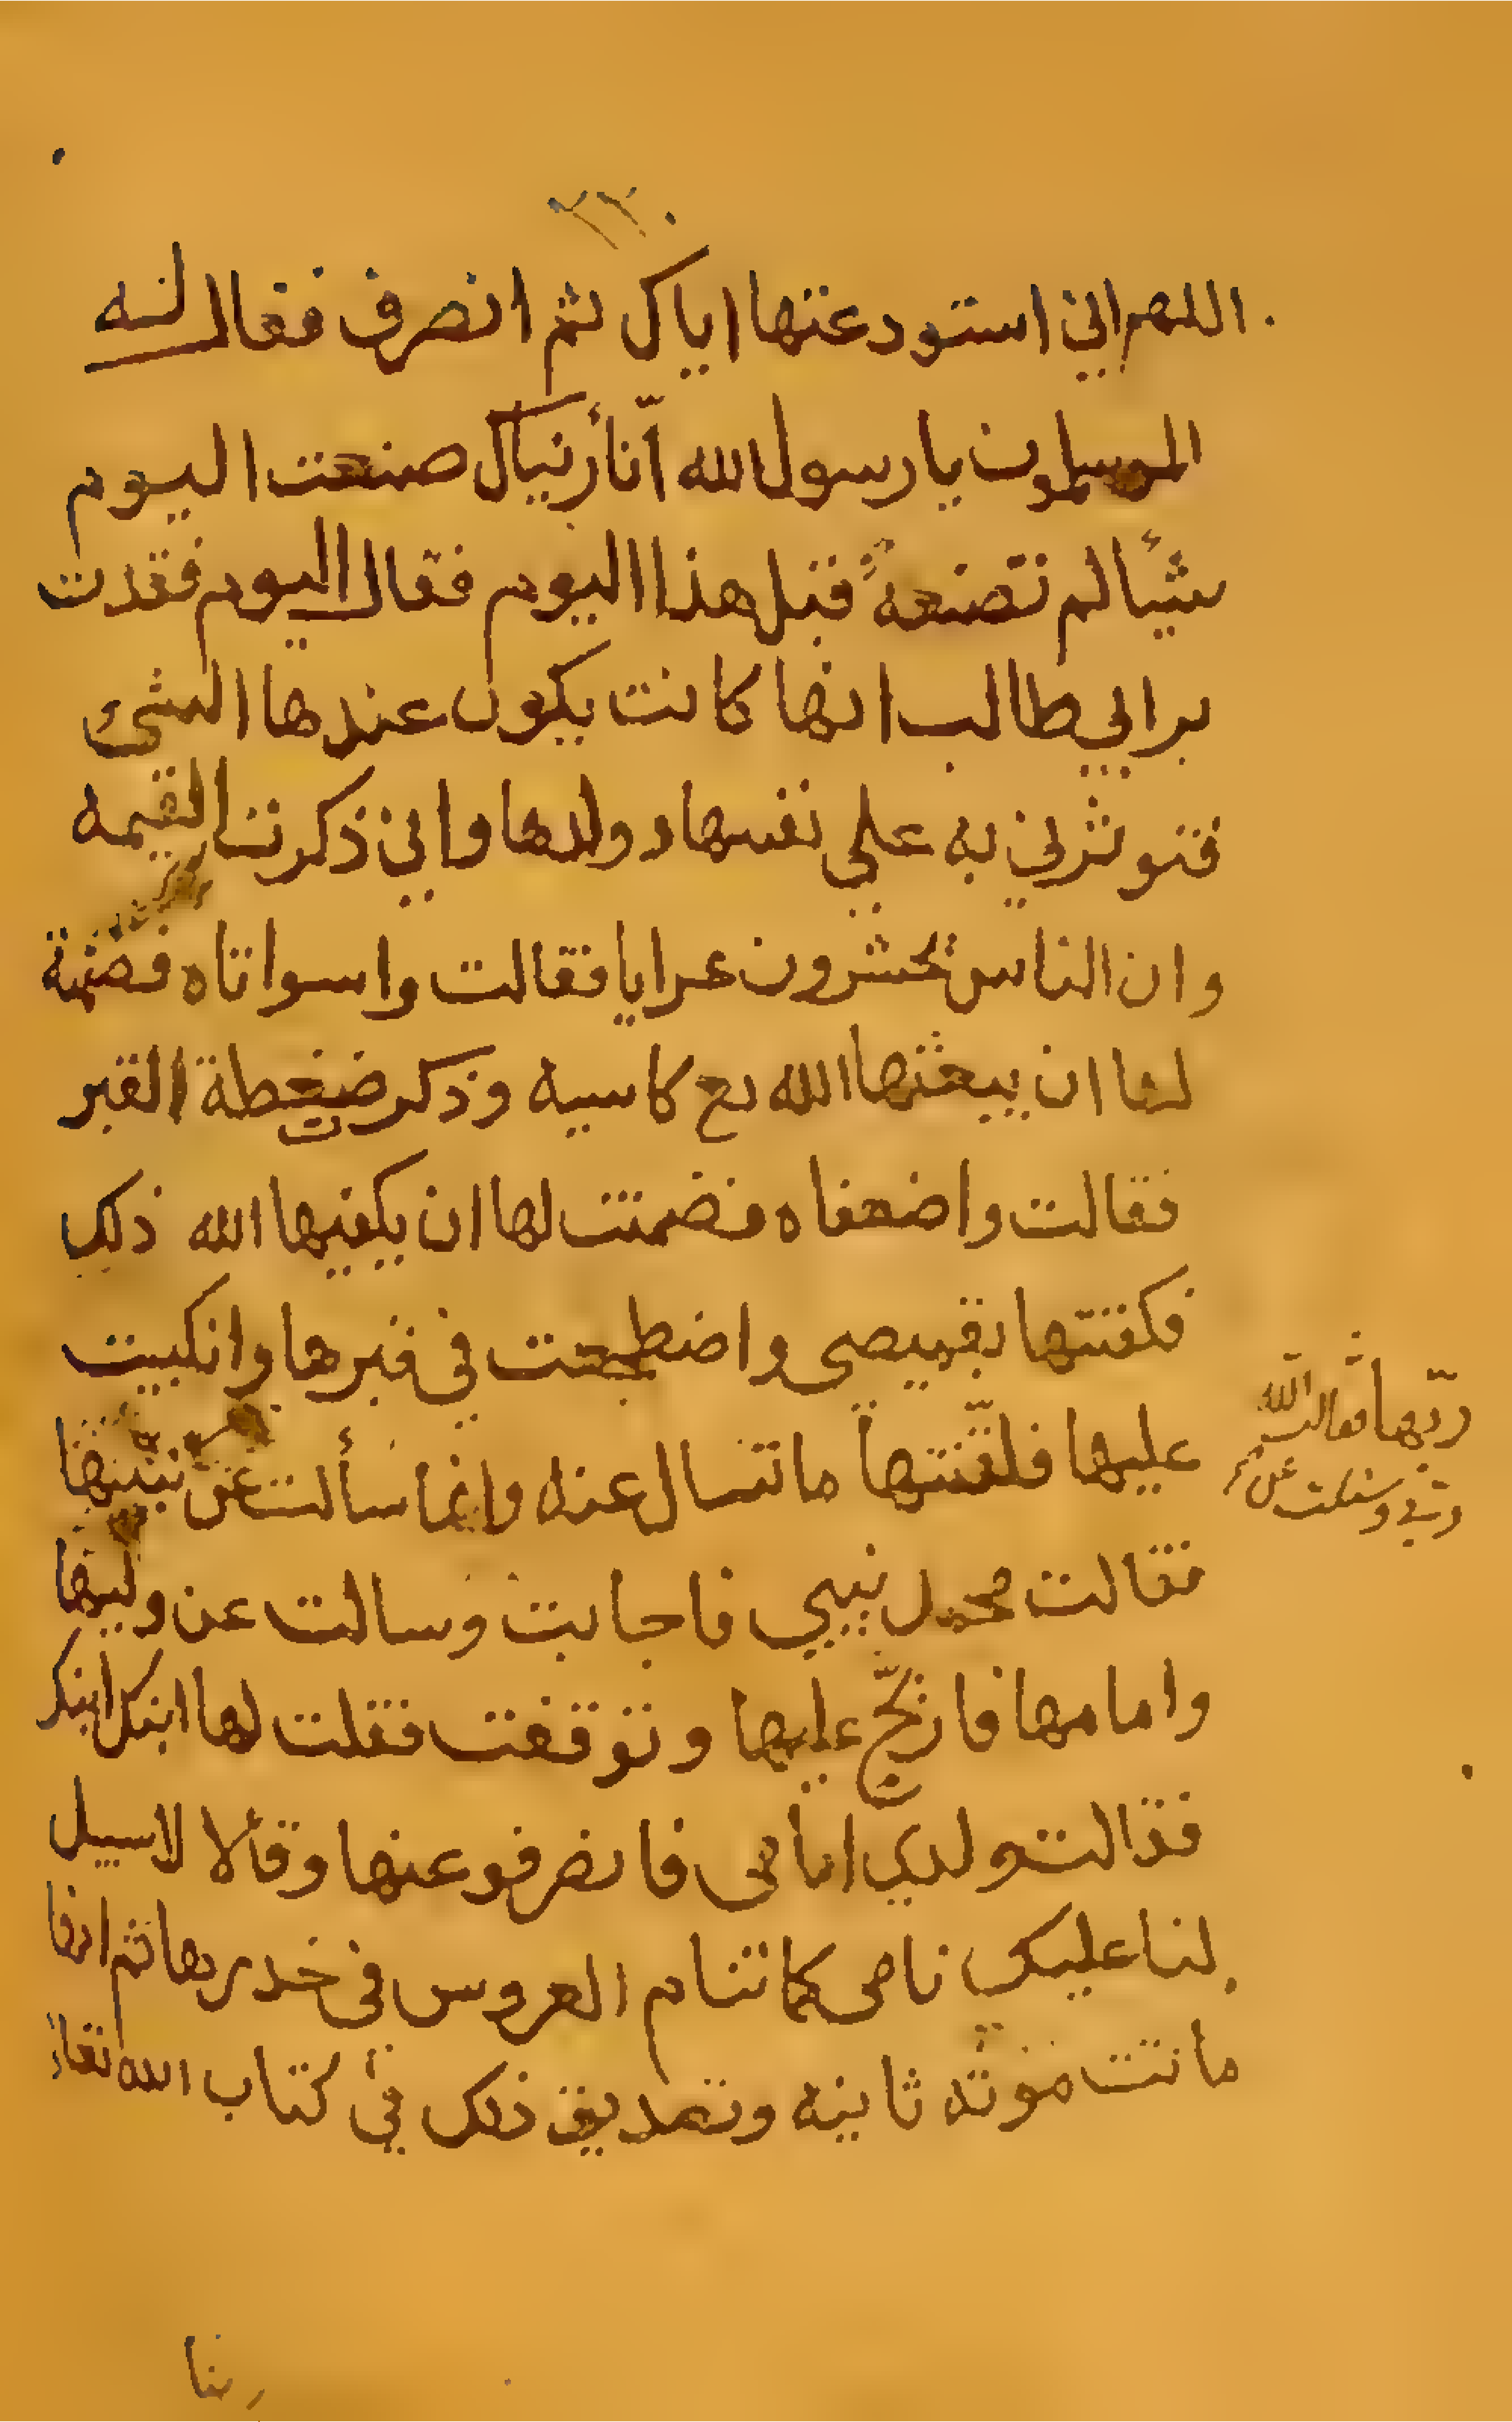 ٢٢٠
اللهم اني استودعتها اياك ثم انصرف فقال له
المسلمون يا رسول الله أنا رأيناك صنعت اليوم
شيئا لم تصنعه قبل هذا اليوم فقال اليوم فقدت
بر ابي طالب انها كانت يكون عندها الشئ
فتوثرني به على نفسها وولدها واني ذكرت القيمه
وان الناس تحشرون عرايا فقالت واسواتاه فضمنة
لها ان يبعثها الله مع كاسية وذكر ضغطة القبر
فقالت واضعفاه فضمنت لها ان يكفيها الله ذلك
فكفنتها بقميصي واضطجعت في قبرها وانكبيت
عليها فلقّنتها ما تسال عنه وانما سألت عن
ربّها فقالت الله
ربي وسئلت عن
نبيّها
فقالت محمد نبيي فاجابت وسالت عن وليها
وامامها فارتجّ عليها وتوقفت فقلت لها ابنك ابنك
فقالت ولدي امامى فانصرفو عنها وقالا لا سبيل
لنا عليك نامى كما تنام العروس في خدرها ثم انها
ماتت موته ثانيه وتصديق ذلك في كتاب الله تعا
ربنا